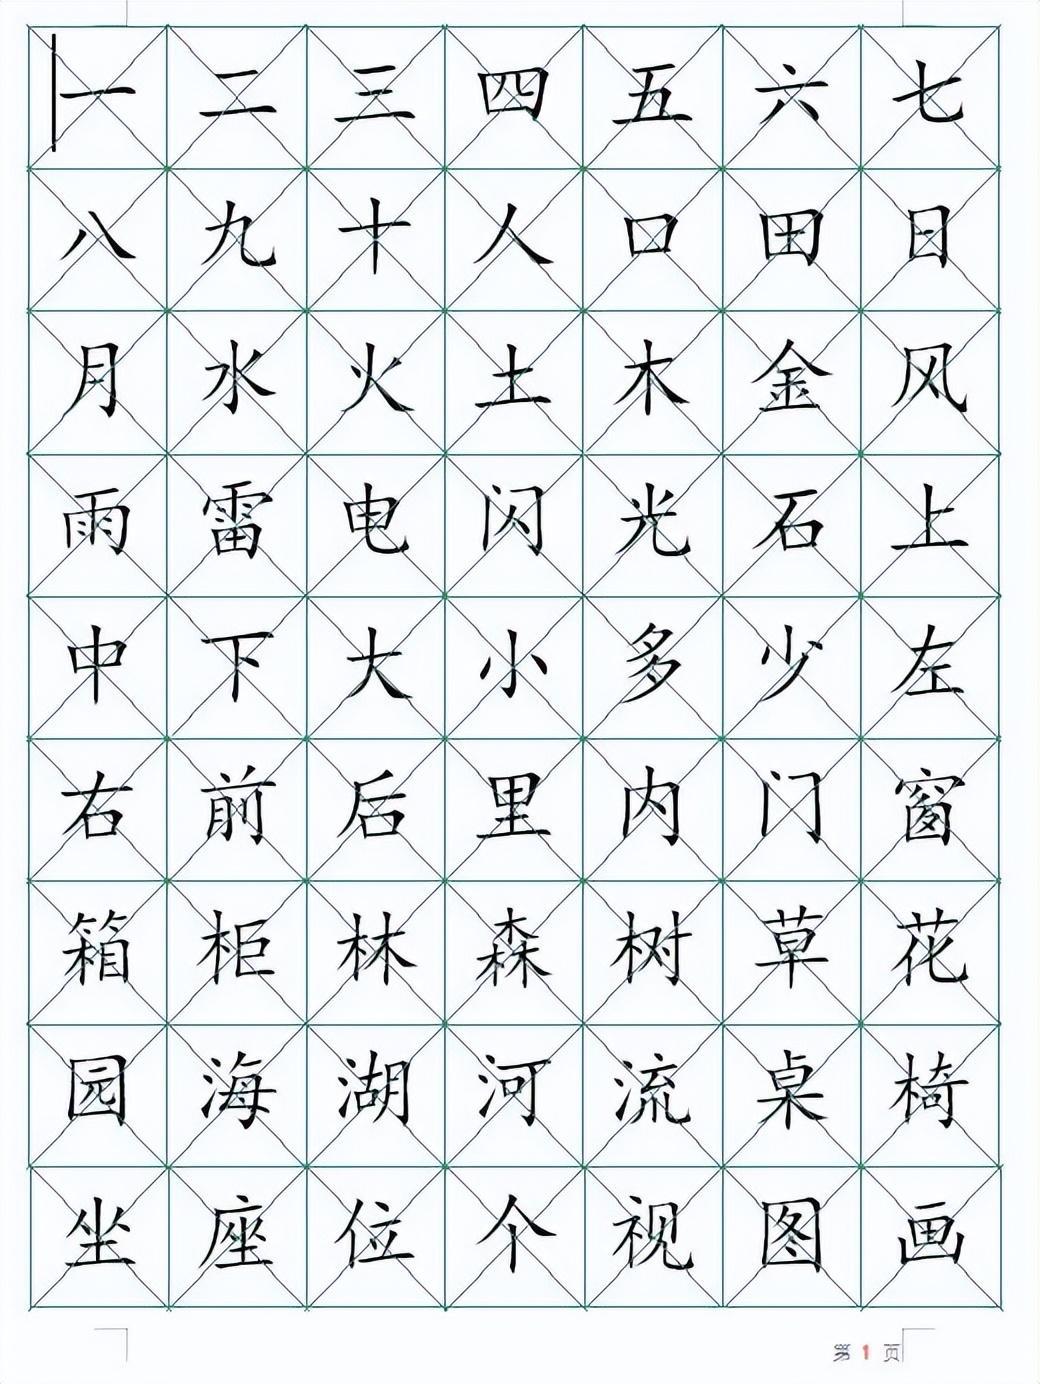 一二三四五六七
八九十人口田日
月水火土木金风
雨雷电闪光石上
中下大小多少左
右前后里内门窗
箱柜林森树草花
园海湖河流桌椅
坐座位个视图画
第 1 页